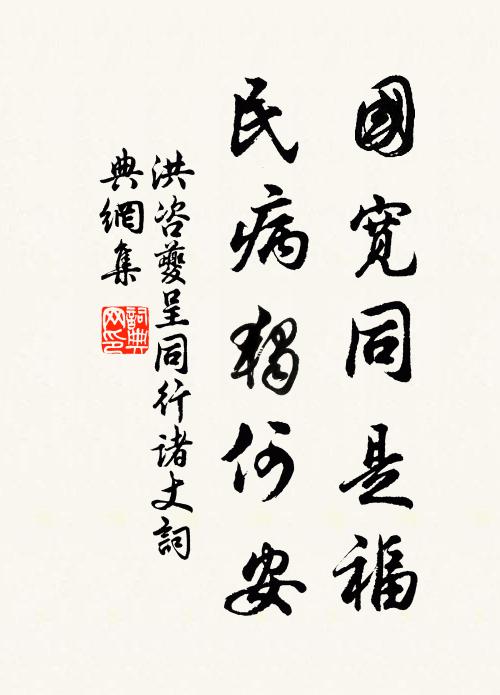 國寬同是福
民病獨何安
洪咨夔呈同行諸丈詞
典網集
詞典
网印